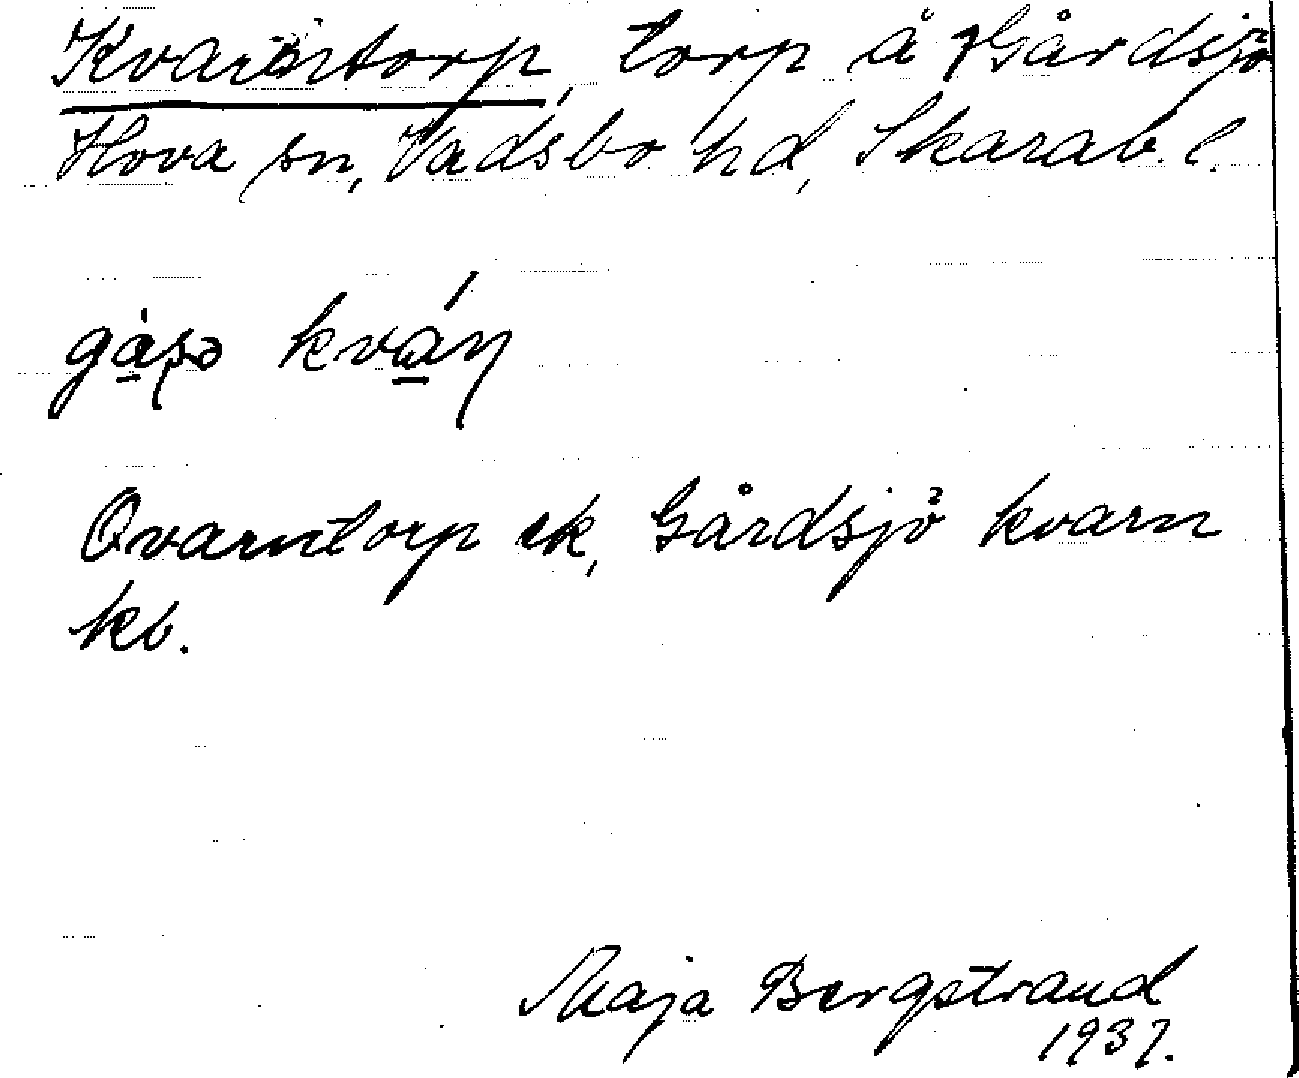 Kvarntorp, torp å Gårdsjö
Hova sn, Vadsbo hd, Skarab. l.
gásə kván
Qvarntorp ek, Gårdsjö kvarn
kb.
Maja Bergstrand
1937.